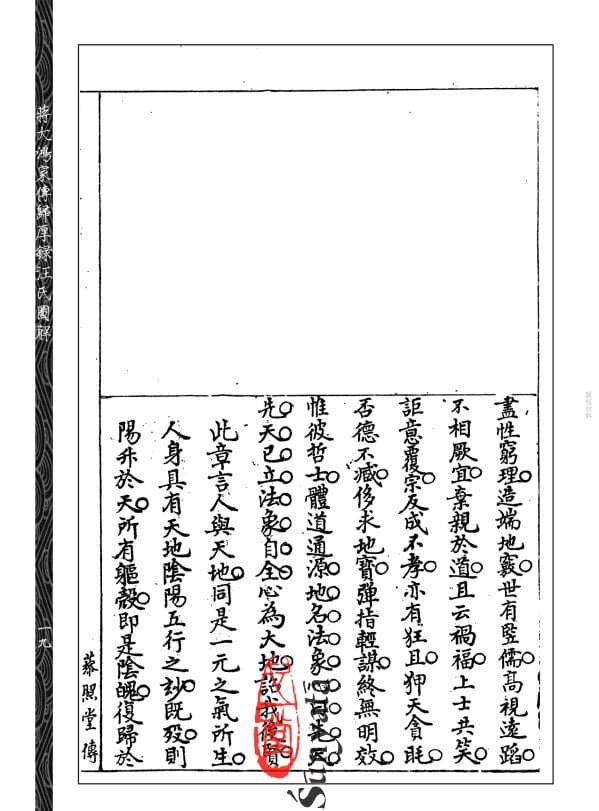 盡性窮理造端地竅世有竪儒高視遠蹈
不相厥宜棄親於道且云禍福上士共笑
詎意覆宗反成不孝亦有狂且狎天貪眂
否德不臧侈求地寶彈指輕謀終無明效
惟彼哲士體道通源地名法象心曰先天
先天已立法象自全心為大地詒我後賢
此章言人與天地同是一元之氣所生
人身具有天地陰陽五行之妙既歿則
陽升於天所有軀殼即是陰魄復歸於
蔡照堂傳
蔣大鴻家傳歸厚錄汪氏圖解
一九
版权材料
Sungata